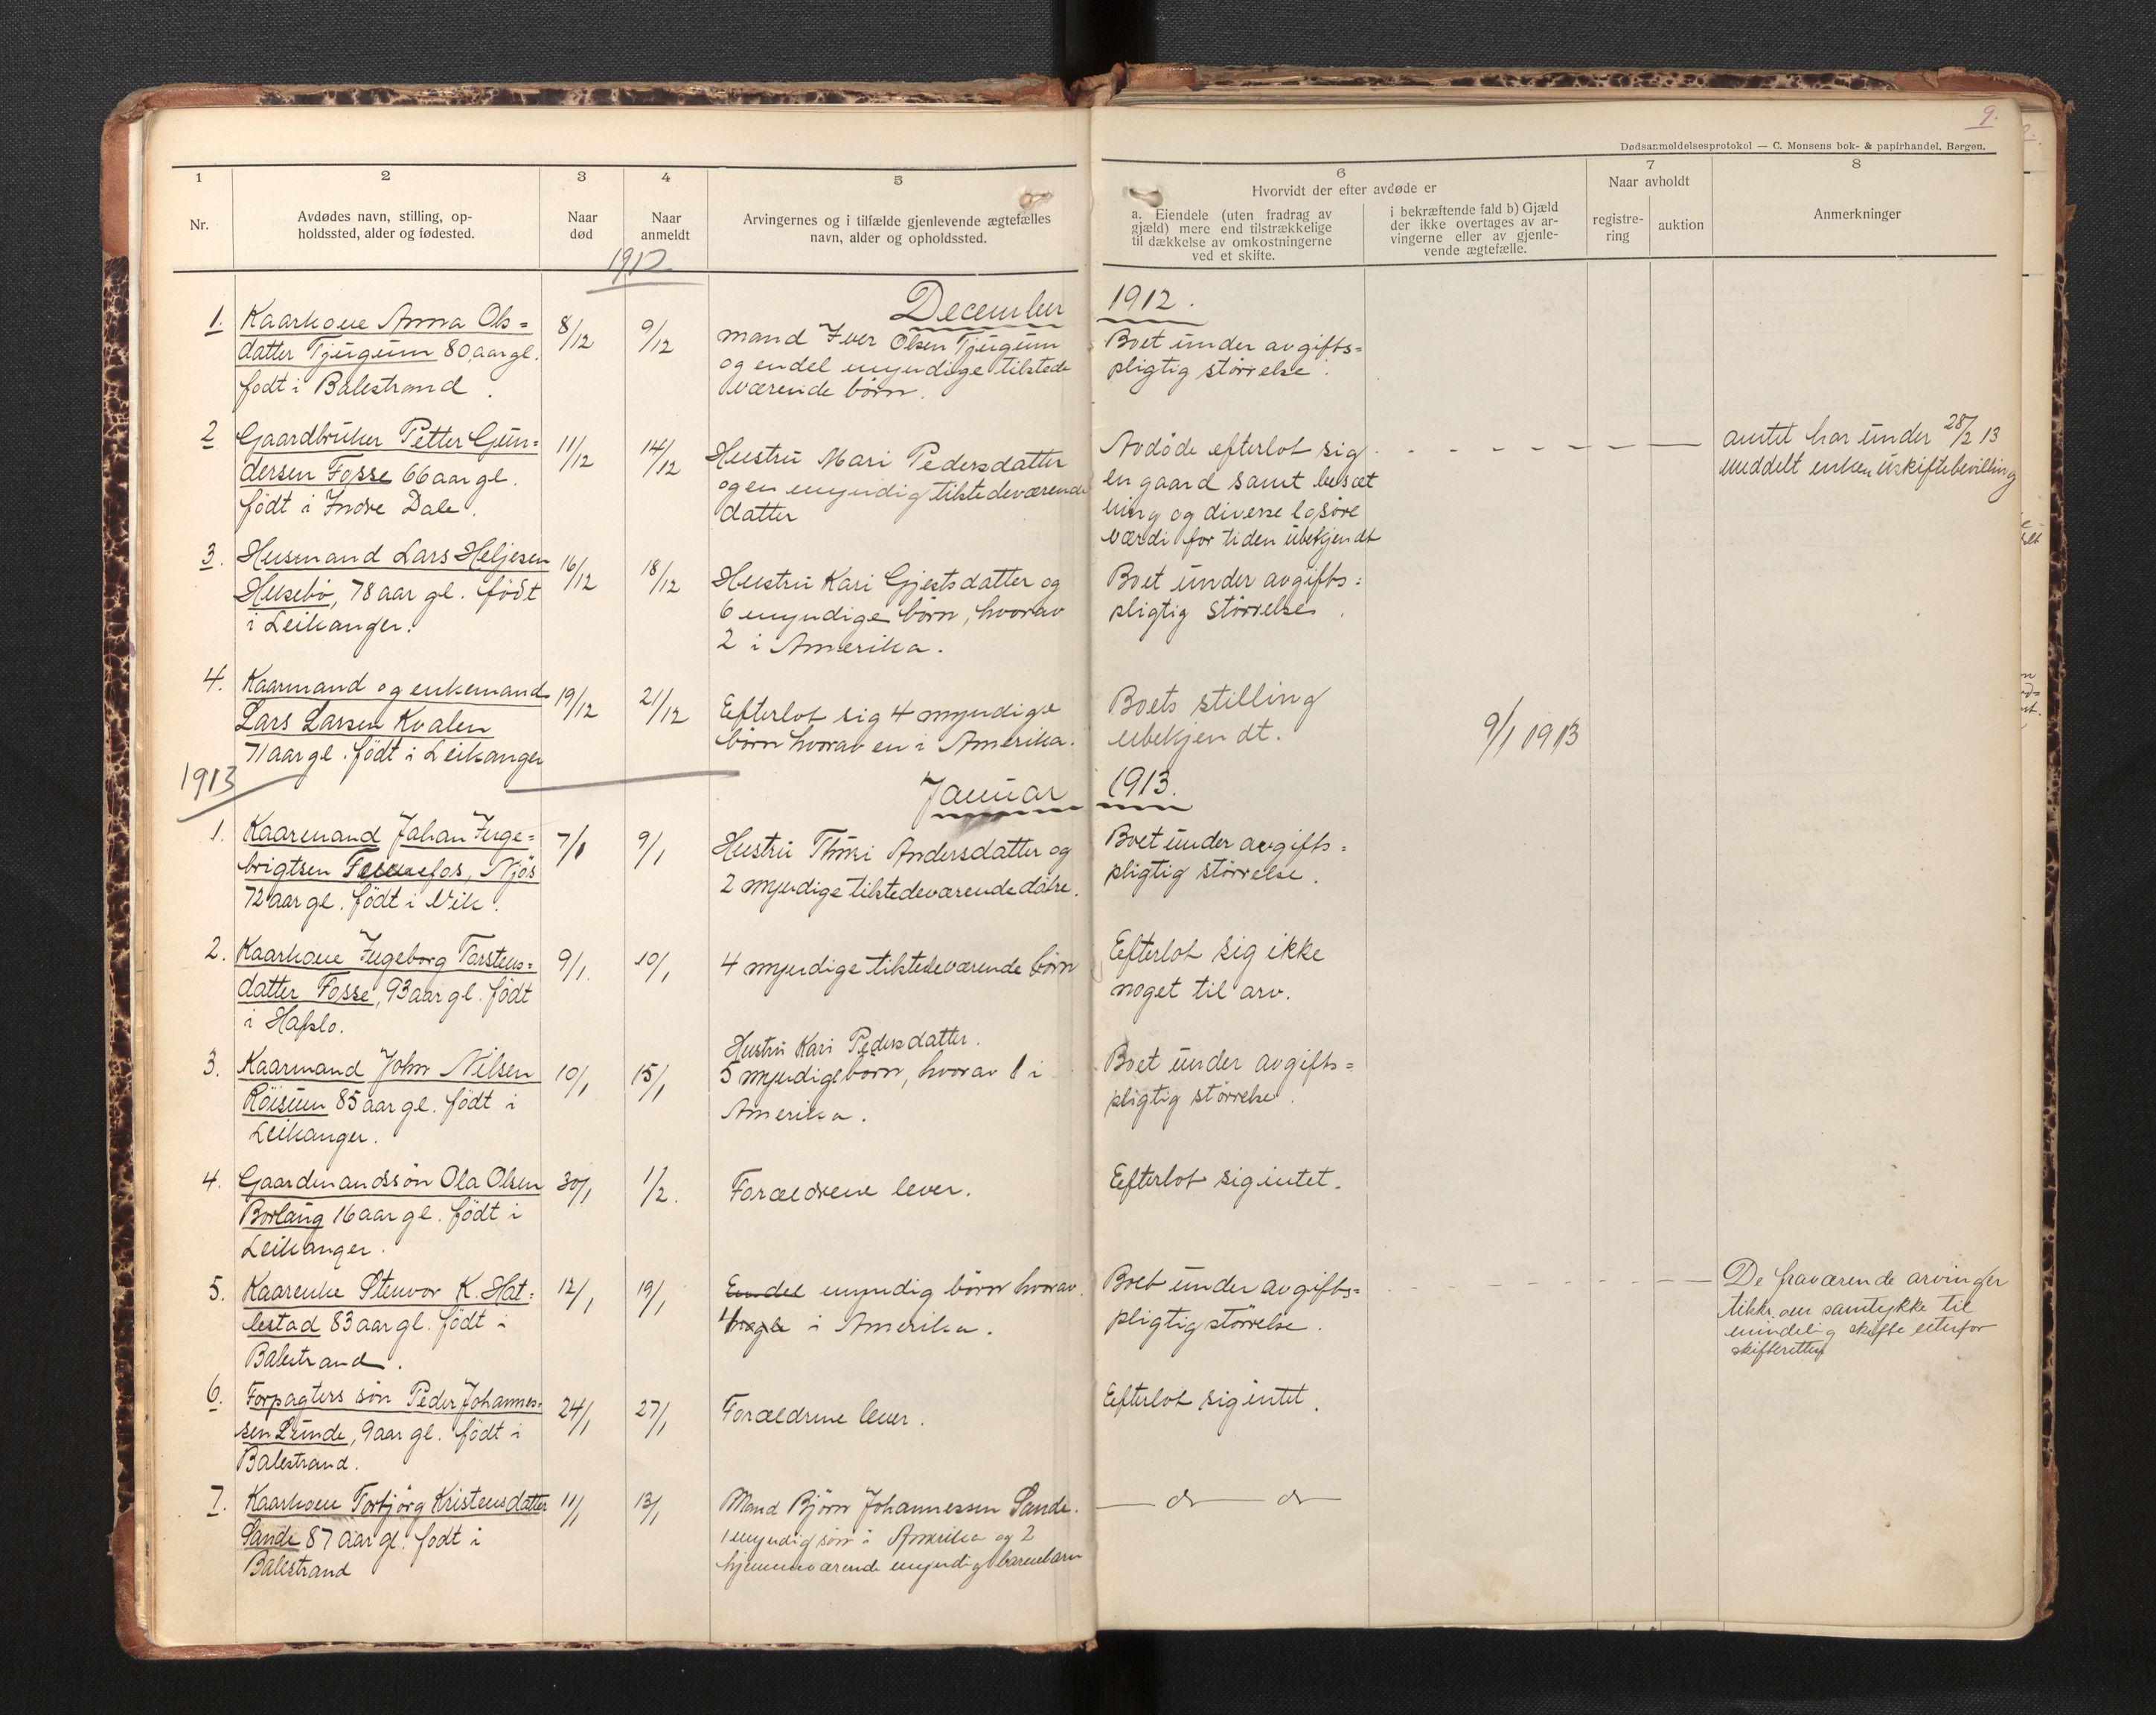 9.
Dødsanmeldelsesprotokol — C. Monsens bok- & papirhandel, Bergen.
1
Nr.
2
Avdødes navn, stilling, op-
holdssted, alder og fødested.
3
Naar
død
4
Naar
anmeldt
5
Arvingernes og i tilfælde gjenlevende ægtefælles
navn, alder og opholdssted.
6
Hvorvidt der efter avdøde er
a. Eiendele (uten fradrag av
gjæld) mere end tilstrækkelige
til dækkelse av omkostningerne
ved et skifte.
i bekræftende fald b) Gjæld
der ikke overtages av ar-
vingerne eller av gjenle-
vende ægtefælle.
7
Naar avholdt
registre-
ring
auktion
8
Anmerkninger
1912
December 1912.
1. Kaarkone Anna Ols=
datter Tjugum 80 aar gl.
født i Balestrand.
8/12
9/12
Mand Iver Olsen Tjugum
og endel myndige tilstede
værende børn.
Boet under avgifts=
pligtig størrelse.
2 Gaardbruker Petter Gun=
dersen Fosse 66 aar gl.
født i Indre Dale.
11/12
14/12
Hustru Mari Pedersdatter
og en myndig tilstedeværende
datter
Avdøde efterlot sig
en gaard samt besæt
ning og diverse løsøre
værdi for tiden ubekjendt
amtet har under 28/2 13
meddelt enken uskiftebevilling
3. Husmand Lars Heljesen
Husebø, 78 aar gl. født
i Leikanger.
16/12
18/12
Hustru Kari Gjestsdatter og
6 myndige børn, hvorav
2 i Amerika.
Boet under avgifts=
pligtig størrelse.
4. Kaarmand og enkemand
Lars Larsen Kvalen
71 aar gl. født i Leikanger
19/12
21/12
Efterlot sig 4 myndige
børn hvorav en i Amerika.
Boets stilling
ubekjendt.
9/1 1913
1913
Januar 1913.
1. Kaarmand Johan Inge=
brigtsen Fennefos, Njøs
72 aar gl. født i Vik.
7/1
9/1
Hustru Thuri Andersdatter og
2 myndige tilstedeværende døtre.
Boet under avgifts=
pligtig størrelse.
2. Kaarkone Ingeborg Torstens=
datter Fosse, 93 aar gl. født
i Hafslo.
9/1.
10/1
4 myndige tilstedeværende børn
Efterlot sig ikke
noget til arv.
3. Kaarmand John Nilsen
Röisum 85 aar gl. født i
Leikanger.
10/1
15/1
Hustru Kari Pedersdatter.
5 myndige børn, hvorav 1 i
Amerika.
Boet under avgifts=
pligtig størrelse.
4. Gaardmandssøn Ola Olsen
Borlaug 16 aar gl. født i
Leikanger.
30/1
1/2.
Forældrene lever.
Efterlot sig intet.
5. Kaarenke Stenvor K. Hat=
lestad 83 aar gl. født i
Balestrand.
12/1
19/1
Endel myndig børn hvorav
4 i Amerika.
Boet under avgifts=
pligtig størrelse.
De fraværende arvinger
samtykke til
mindelig skifte
skifteretten
6. Forpagters søn Peder Johannes=
sen Lunde, 9 aar gl. født i
Balestrand.
24/1
27/1
Forældrene lever.
Efterlot sig intet.
7. Kaarkone Torbjörg Kristensdatter
Sande 87 aar gl. født i
Balestrand
11/1
13/1
Mand Björn Johannessen Sande.
1 myndig søn i Amerika og 2
hjemmeværende myndig barnebarn
— do — do —